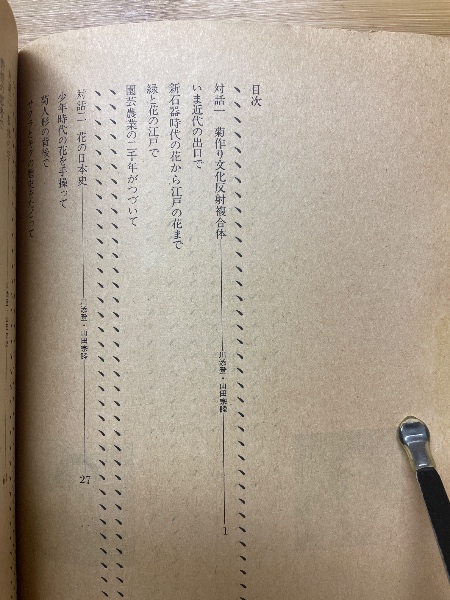 目次
対話一 菊作り文化反射複合体 川添登・山田宗睦 1
いま近代の出口で
新石器時代の花から江戸の花まで
緑と花の江戸で
園芸農業の二千年がつづいて
対話二 花の日本史 川添登・山田宗睦 27
少年時代の花を手操って
菊人形の背後で